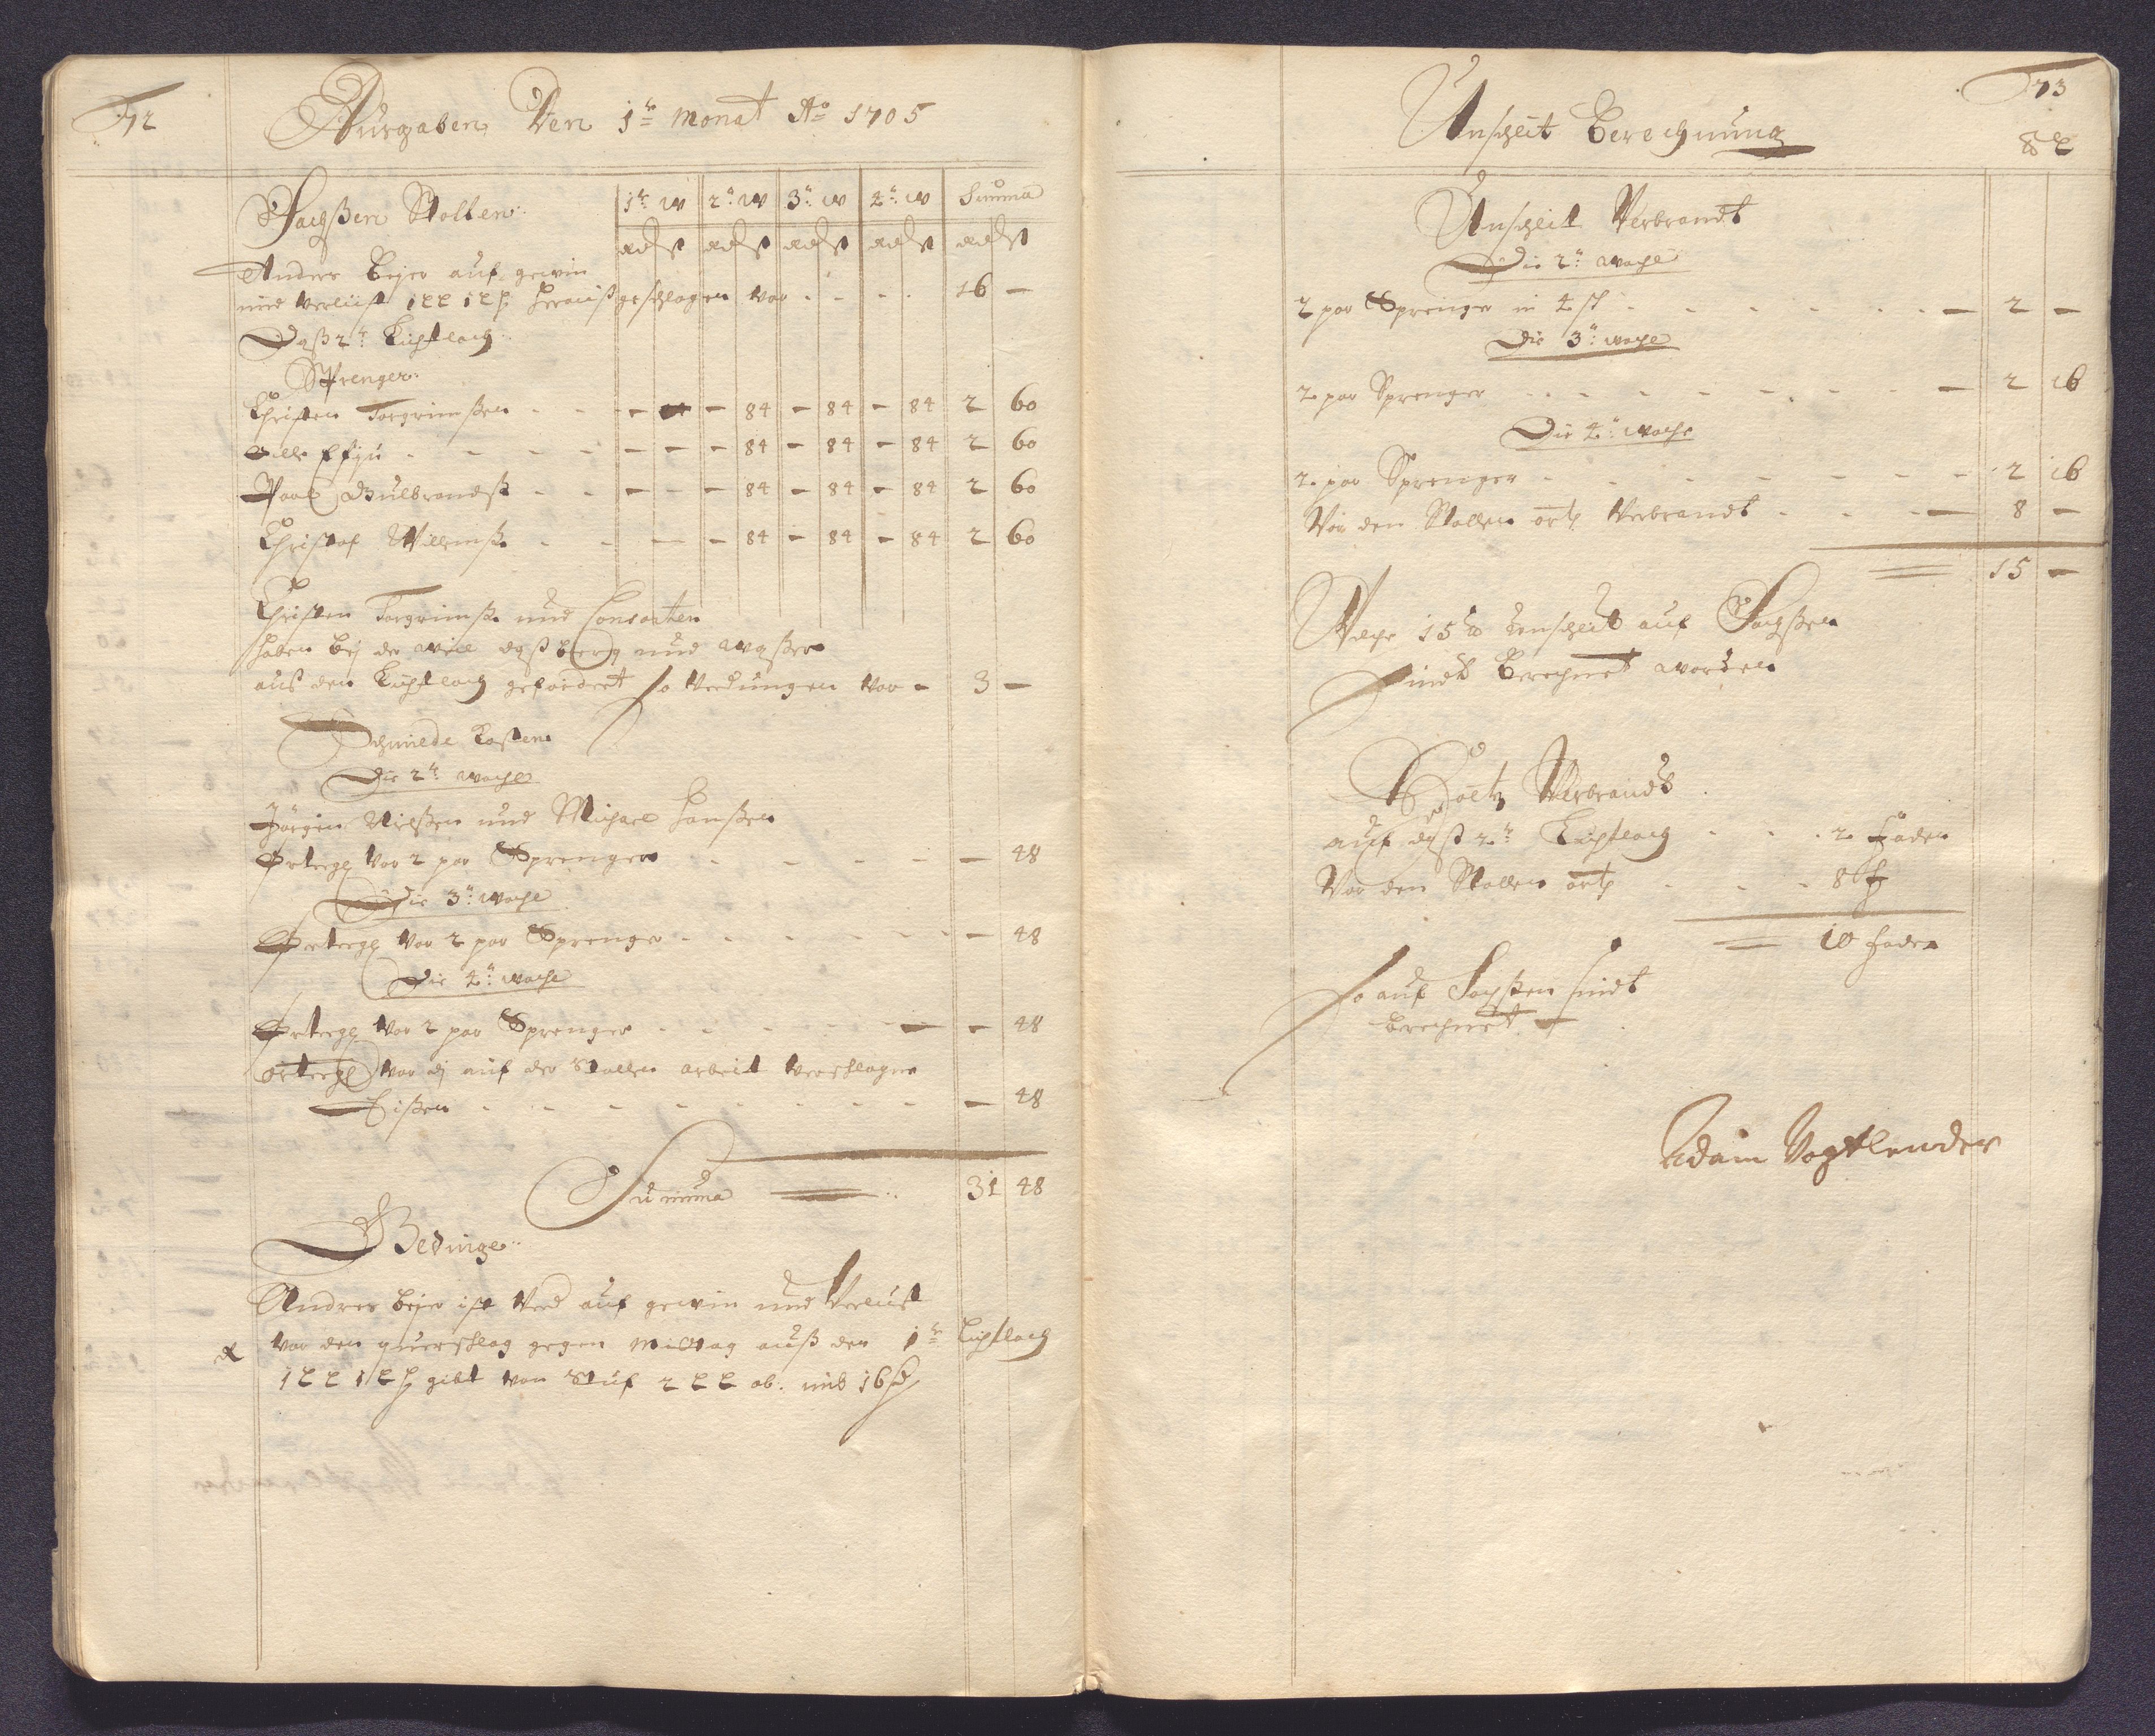 72
Ausgaben Den 1te monat Ao 1705
Sachßen Stollen
1te w 2te w 3te w 4te w Summa
Anders Beyer auf gewin
und verlust 1 L L 1 L h herauß geschlagen vor 16 -
Daß 2te Lichtloch
Sprenger
Christen Torgrimßen - - - 84 - 84 - 84 2 60
- - - 84 - 84 - 84 2 60
Paal Gulbrandß - - - 84 - 84 - 84 2 60
Christof Willemß - - - 84 - 84 - 84 2 60
Christen Torgrimß und Consorten
haben bej der weil daß berg und waßer
auß den Lichtloch gefördert so Verdungen vor - 3 -
Schmiede Kosten
Die 2te woche
Jörgen Nielßen und Michael Hanßen
Örtergl vor 2 par Sprenger - 48
Die 3te woche
Örtergl vor 2 par Sprenger - 48
Die 4te woche
Örtergl vor 2 par Sprenger - 48
örtergl vor dj auf der Stollen arbeit verschlagne
Eißen - 48
Summa 31 48
Gedinge
Andres Beyer ist Verd auf gewin und Verlust
vor den querschlag gegen mittag auß den 1te Lichtloch
1 L L 1 L h gibt von Stuf 2 L L ob. und 16
73
Unschlit Berechnung
Unschlit Verbrandt
Die 2te woche
2 par Sprenger in 4 st - 2 -
Die 3te woche
2 par Sprenger - 2 16
Die 4te woche
2 par Sprenger - 2 16
Vor den Stollen ort Verbrandt - 8 -
15 -
Welche 15 ℔ Unschlit auf Sachßen
sindt Berechnet worden
Holtz Verbrandt
auf daß 2te Lichtloch 2 Faden
Vor den Stollen ort 8 F
10 faden
so auf Sachßen sindt
berechnet
Adam Vogtlender